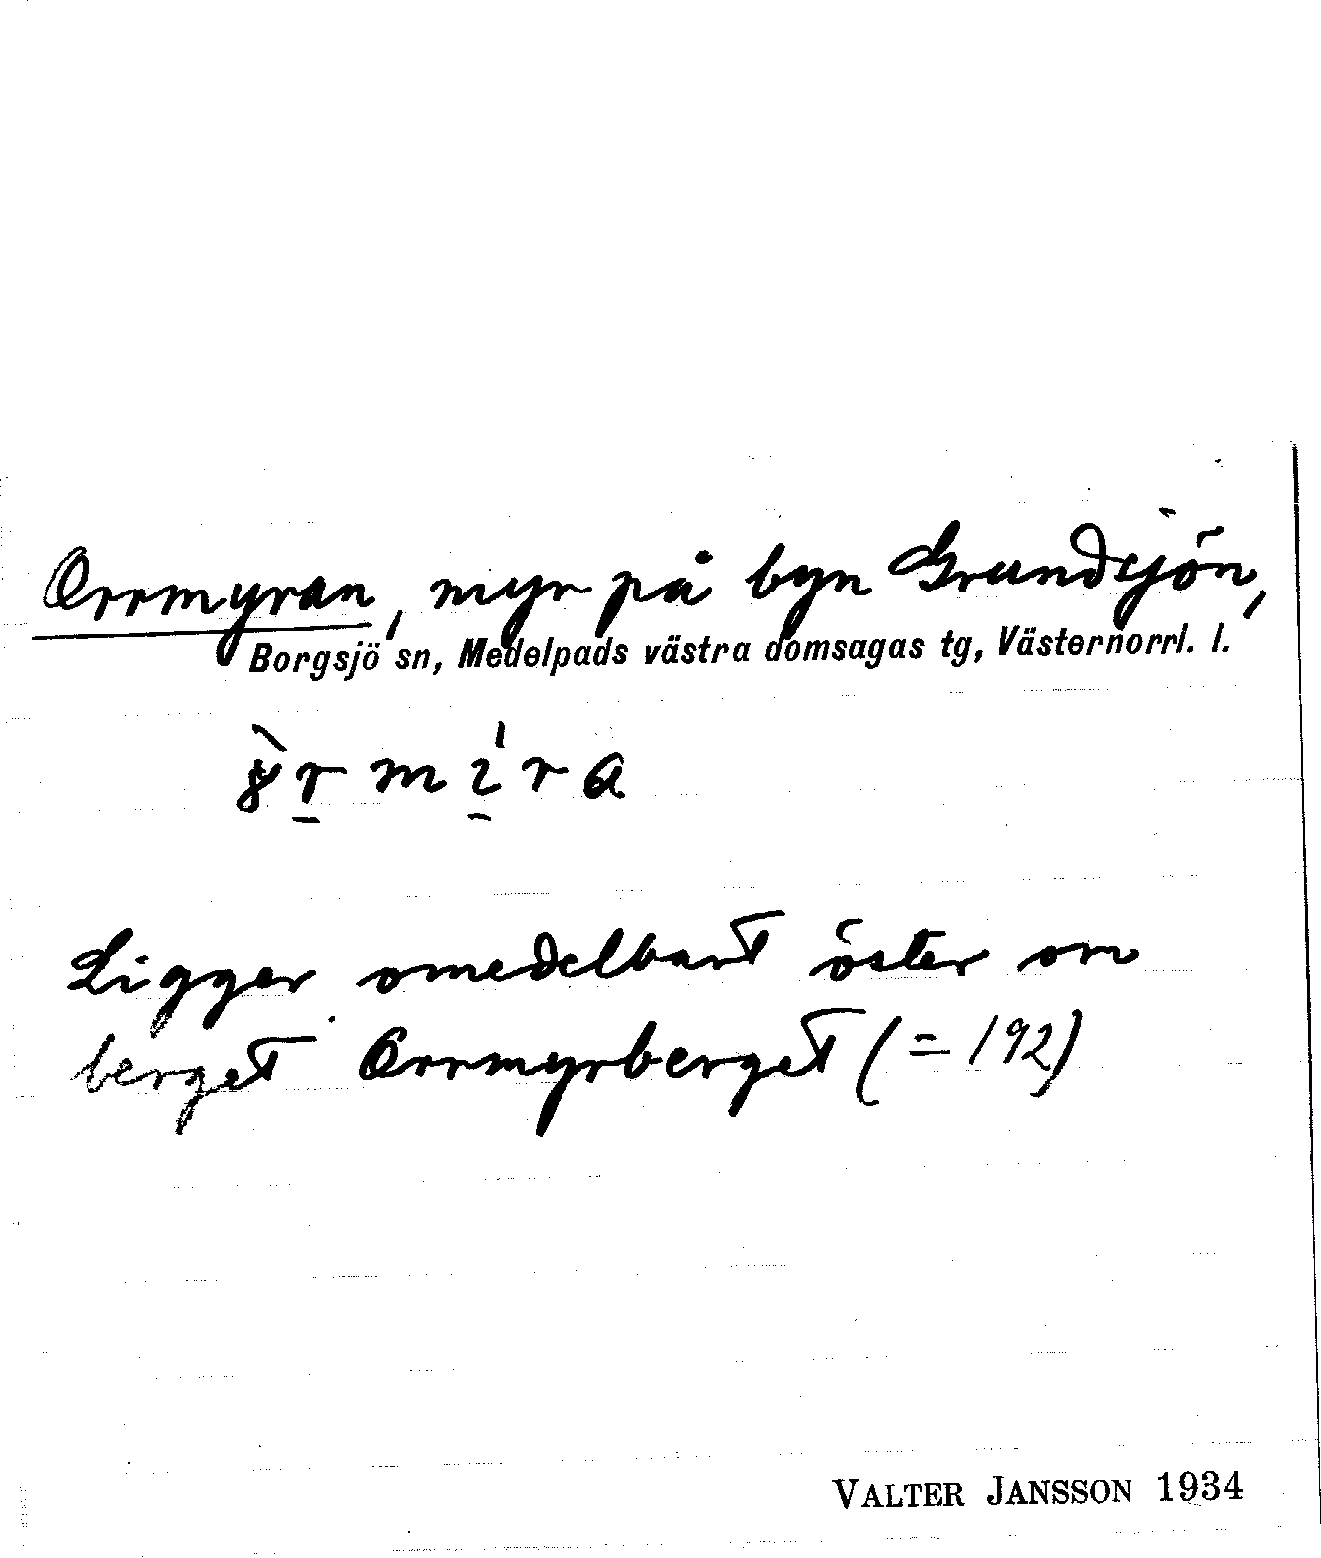 Orrmyran, myr på byn Grundsjön,
Borgsjö sn, Medelpads västra domsagas tg, Västernorrl. l.
Ligger omedelbart öster om
berget Orrmyrberget (= 192)
VALTER JANSSON 1934